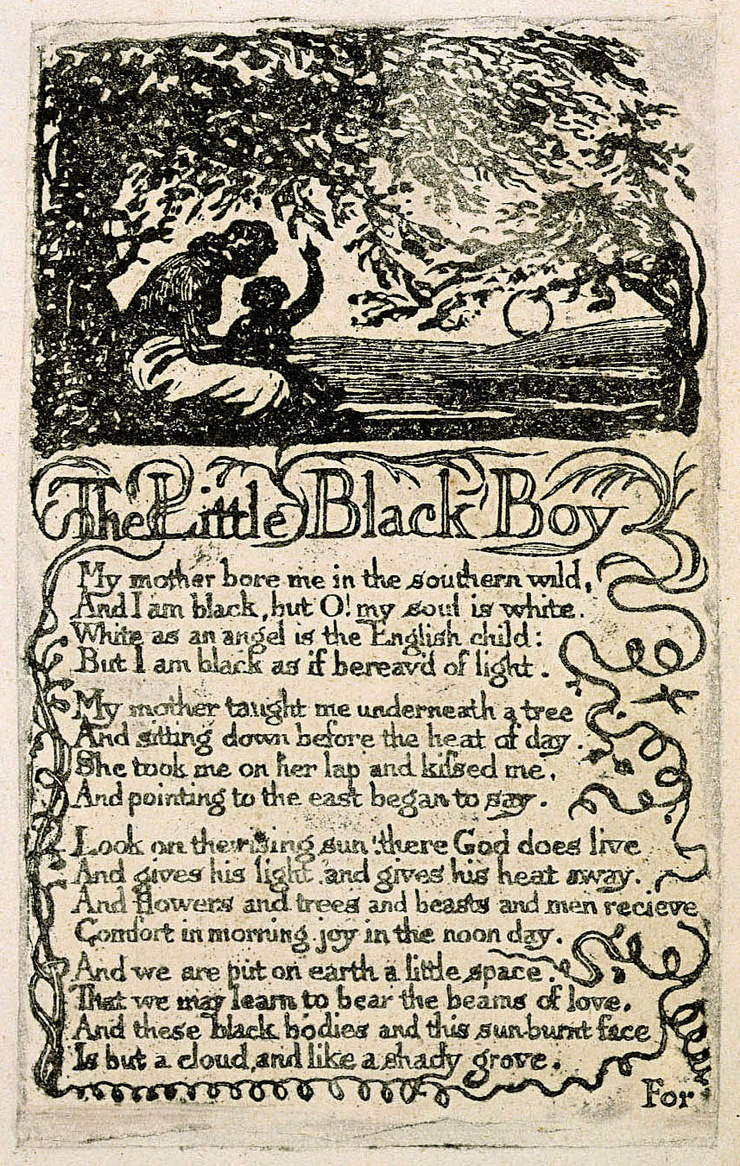 The Little Black Boy
My mother bore me in the southern wild,
And I am black, but O! my soul is white.
White as an angel is the English child:
But I am black as if bereav'd of light.
My mother taught me underneath a tree
And sitting down before the heat of day.
She took me on her lap and kiſsed me,
And pointing to the east began to say.
Look on the rising sun: there God does live
And gives his light, and gives his heat away.
And flowers and trees and beasts and men recieve
Comfort in morning joy in the noon day.
And we are put on earth a little space.
That we may learn to bear the beams of love,
And these black bodies and this sun-burnt face
Is but a cloud, and like a shady grove.
For